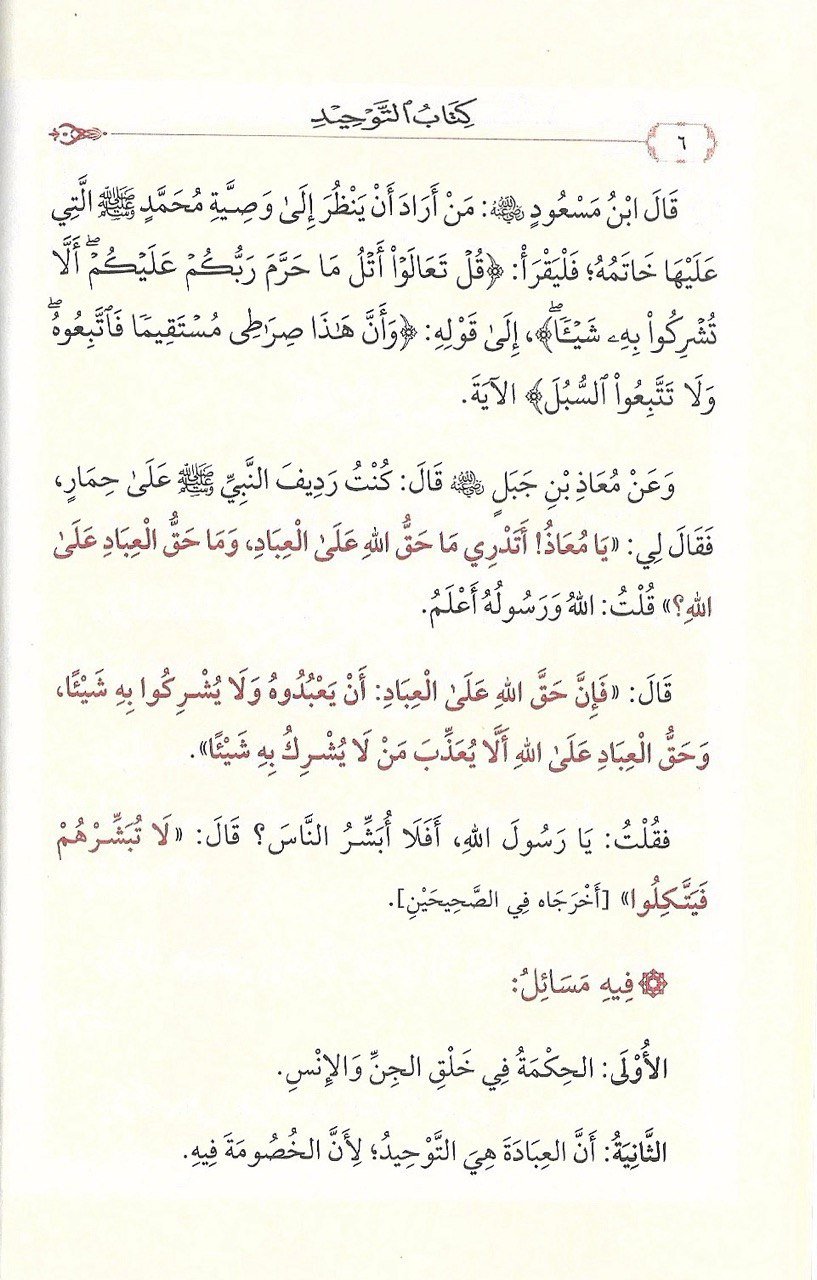 كِتَابُ التَّوْحِيْدِ
٦
قَالَ ابْنُ مَسْعُودٍ ﵁: مَنْ أَرَادَ أَنْ يَنْظُرَ إِلَىٰ وَصِيَّةِ مُحَمَّدٍ ﷺ الَّتِي
عَلَيْهَا خَاتَمُهُ؛ فَلْيَقْرَأْ: ﴿قُلۡ تَعَالَوۡاْ أَتۡلُ مَا حَرَّمَ رَبُّكُمۡ عَلَيۡكُمۡۖ أَلَّا
تُشۡرِكُواْ بِهِۦ شَيۡـٔٗاۖ﴾، إِلَىٰ قَوْلِهِ: ﴿وَأَنَّ هَٰذَا صِرَٰطِي مُسۡتَقِيمٗا فَٱتَّبِعُوهُۖ
وَلَا تَتَّبِعُواْ ٱلسُّبُلَ﴾ الآيَةَ.
وَعَنْ مُعَاذِ بْنِ جَبَلٍ ﵁ قَالَ: كُنْتُ رَدِيفَ النَّبِيِّ ﷺ عَلَىٰ حِمَارٍ،
فَقَالَ لِي: «يَا مُعَاذُ! أَتَدْرِي مَا حَقُّ اللهِ عَلَىٰ الْعِبَادِ، وَمَا حَقُّ الْعِبَادِ عَلَىٰ
اللهِ؟» قُلْتُ: اللهُ وَرَسُولُهُ أَعْلَمُ.
قَالَ: «فَإِنَّ حَقَّ اللهِ عَلَىٰ الْعِبَادِ: أَنْ يَعْبُدُوهُ وَلَا يُشْرِكُوا بِهِ شَيْئًا،
وَحَقُّ الْعِبَادِ عَلَىٰ اللهِ أَلَّا يُعَذِّبَ مَنْ لَا يُشْرِكُ بِهِ شَيْئًا».
فقُلْتُ: يَا رَسُولَ اللهِ، أَفَلَا أُبَشِّرُ النَّاسَ؟ قَالَ: «لَا تُبَشِّرْهُمْ
فَيَتَّكِلُوا» [أَخْرَجَاه فِي الصَّحِيحَيْنِ].
فِيهِ مَسَائِلُ:
الأُوْلَى: الحِكْمَةُ فِي خَلْقِ الجِنِّ وَالإِنْسِ.
الثَّانِيَةُ: أَنَّ العِبَادَةَ هِيَ التَّوْحِيدُ؛ لِأَنَّ الخُصُومَةَ فِيهِ.